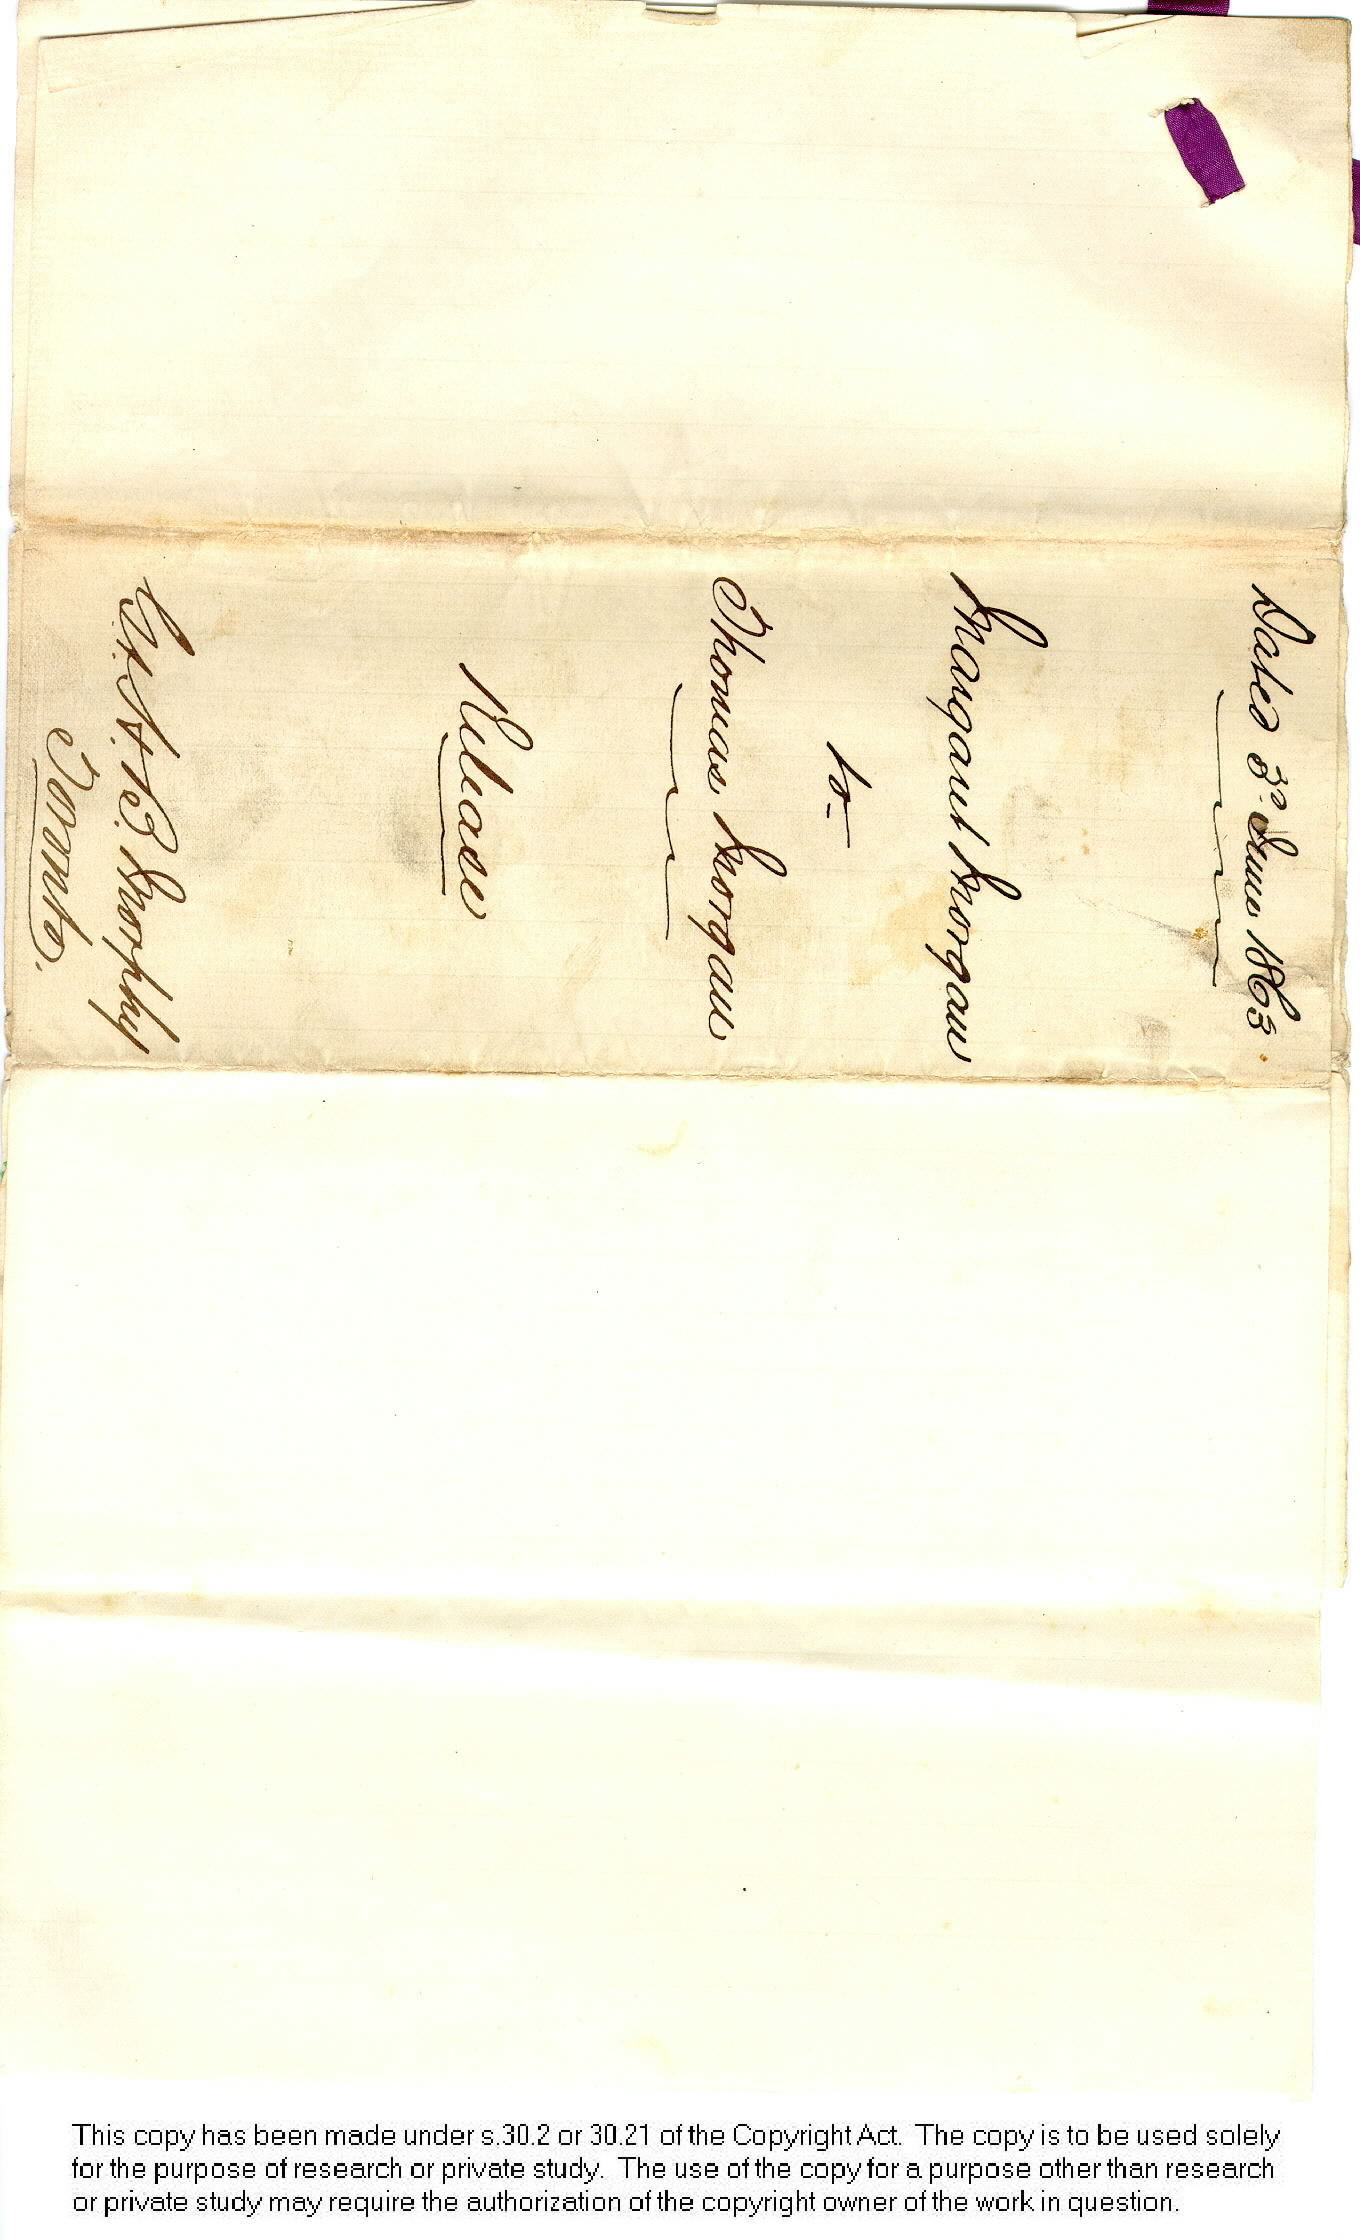 Dated 3d. June 1863.
Margaret Morgan
to
Thomas Morgan
Release
E. B. Morphy
Toronto.
This copy has been made under s.30.2 or 30.21 of the Copyright Act. The copy is to be used solely
for the purpose of research or private study. The use of the copy for a purpose other than research
or private study may require the authorization of the copyright owner of the work in question.